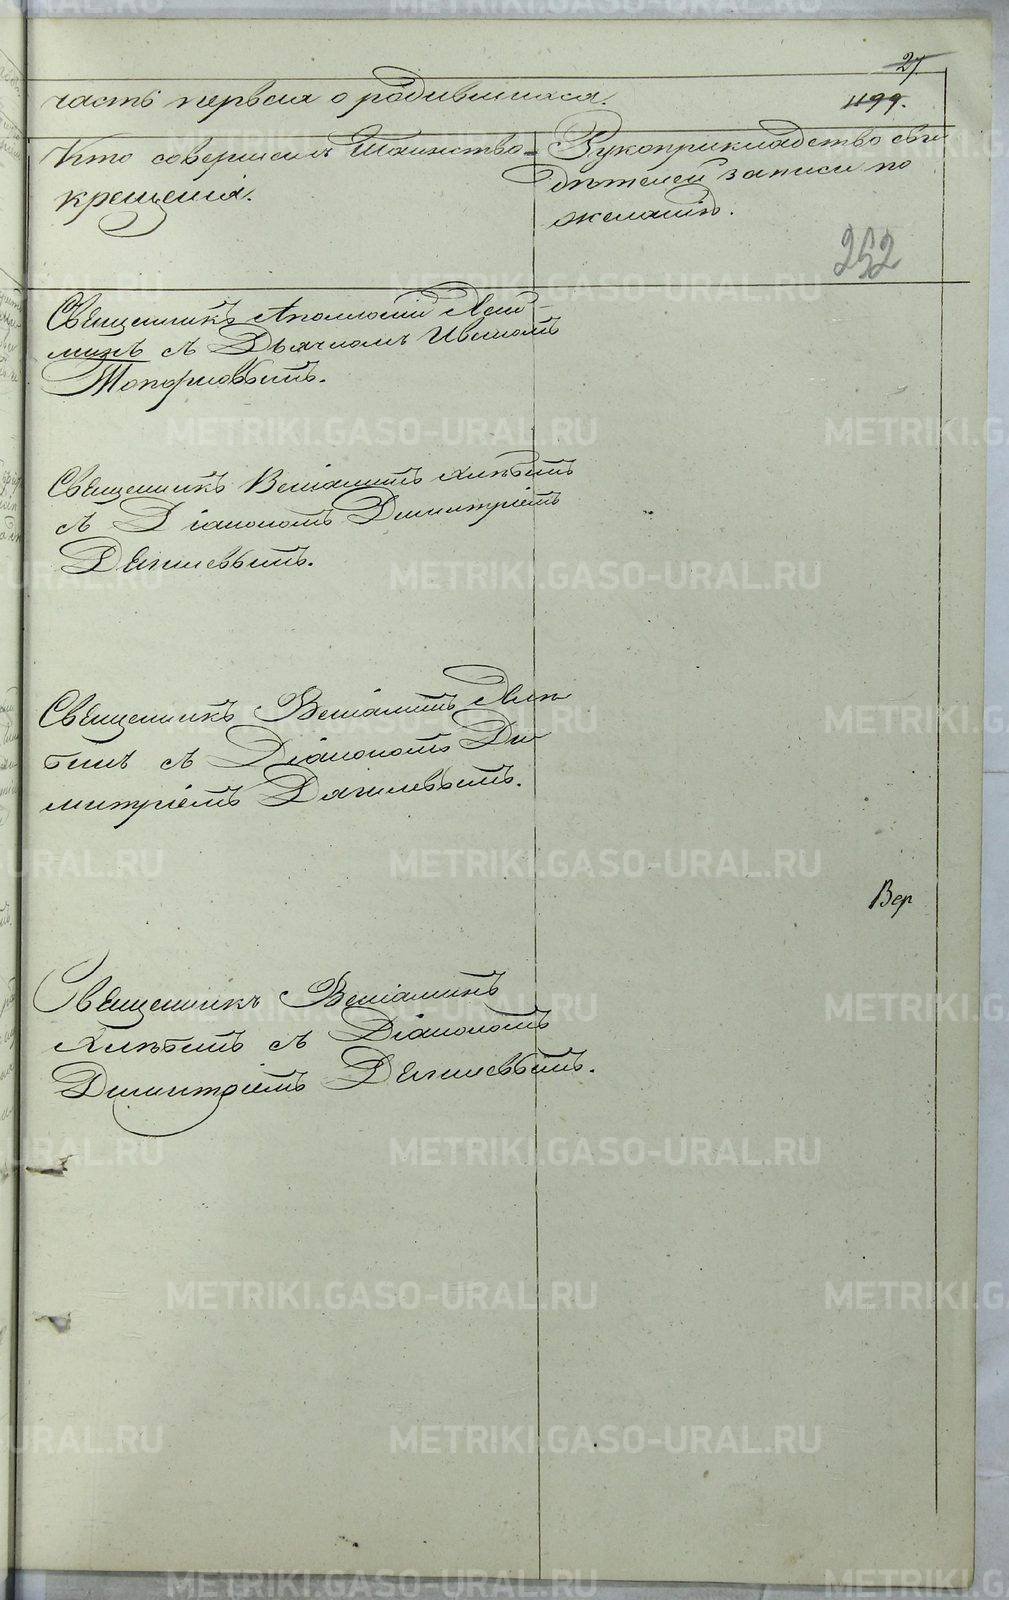 27
часть первая о родившихся.
1199.
Кто совершилъ Таинство
крещенія.
Рукоприкладство сви-
дѣтелей записи по
желанію.
252
Священникъ Аполлоній
съ Дьячкомъ Иваномъ
Топорковымъ.
Священникъ Веніаминъ Хлѣбинъ
съ Діакономъ Димитріемъ
Дягилевымъ.
Священникъ Веніаминъ Хлѣ-
бинъ съ Діакономъ Ди-
митріемъ Дягилевымъ.
Вер
Священникъ Веніаминъ
Хлѣбинъ съ Діакономъ
Димитріемъ Дягилевымъ.
METRIKI.GASO-URAL.RU